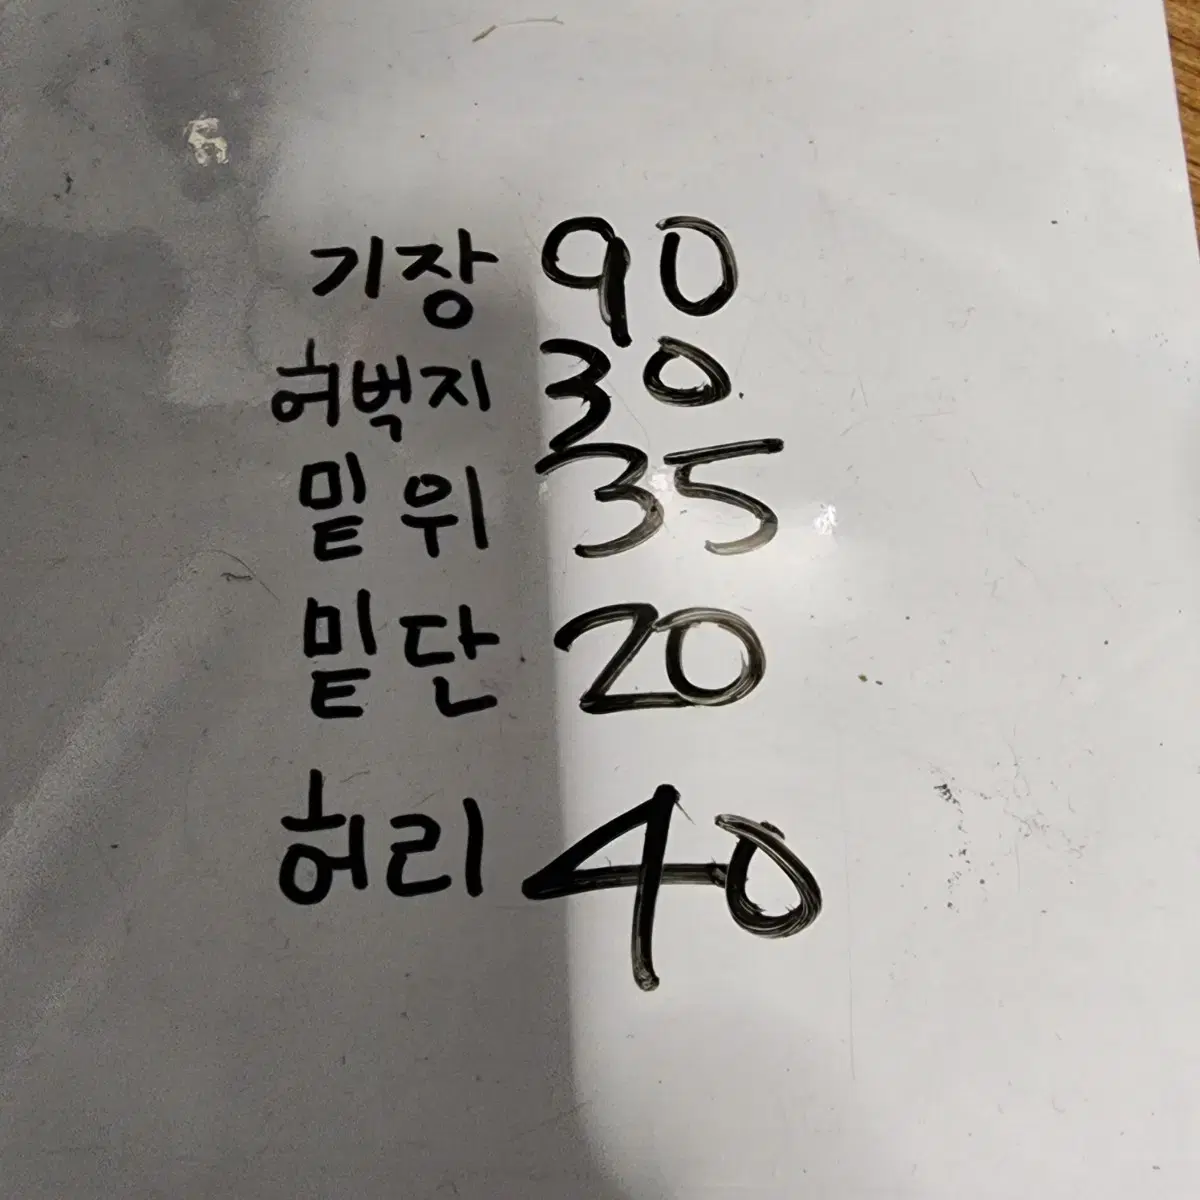 기장 90
허벅지 30
밑위 35
밑단 20
허리 40